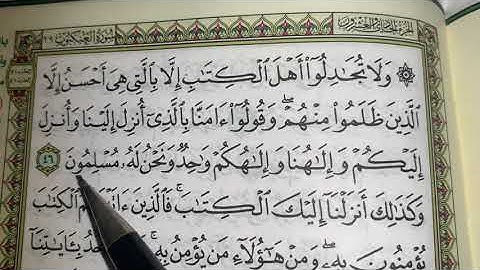 سورة العنكبوت ٢٩ الجزء الحادي والعشرون
۞ وَلَا تُجَٰدِلُوٓا۟ أَهْلَ ٱلْكِتَٰبِ إِلَّا بِٱلَّتِى هِىَ أَحْسَنُ إِلَّا
ٱلَّذِينَ ظَلَمُوا۟ مِنْهُمْ ۖ وَقُولُوٓا۟ ءَامَنَّا بِٱلَّذِىٓ أُنزِلَ إِلَيْنَا وَأُنزِلَ
إِلَيْكُمْ وَإِلَٰهُنَا وَإِلَٰهُكُمْ وَٰحِدٌ وَنَحْنُ لَهُۥ مُسْلِمُونَ ٤٦
وَكَذَٰلِكَ أَنزَلْنَآ إِلَيْكَ ٱلْكِتَٰبَ ۚ فَٱلَّذِينَ ٱلْكِتَٰبَ
يُؤْمِنُونَ بِهِۦ ۖ وَمِنْ هَٰٓؤُلَآءِ مَن يُؤْمِنُ بِهِۦ ۚ بِـَٔايَٰتِنَآ